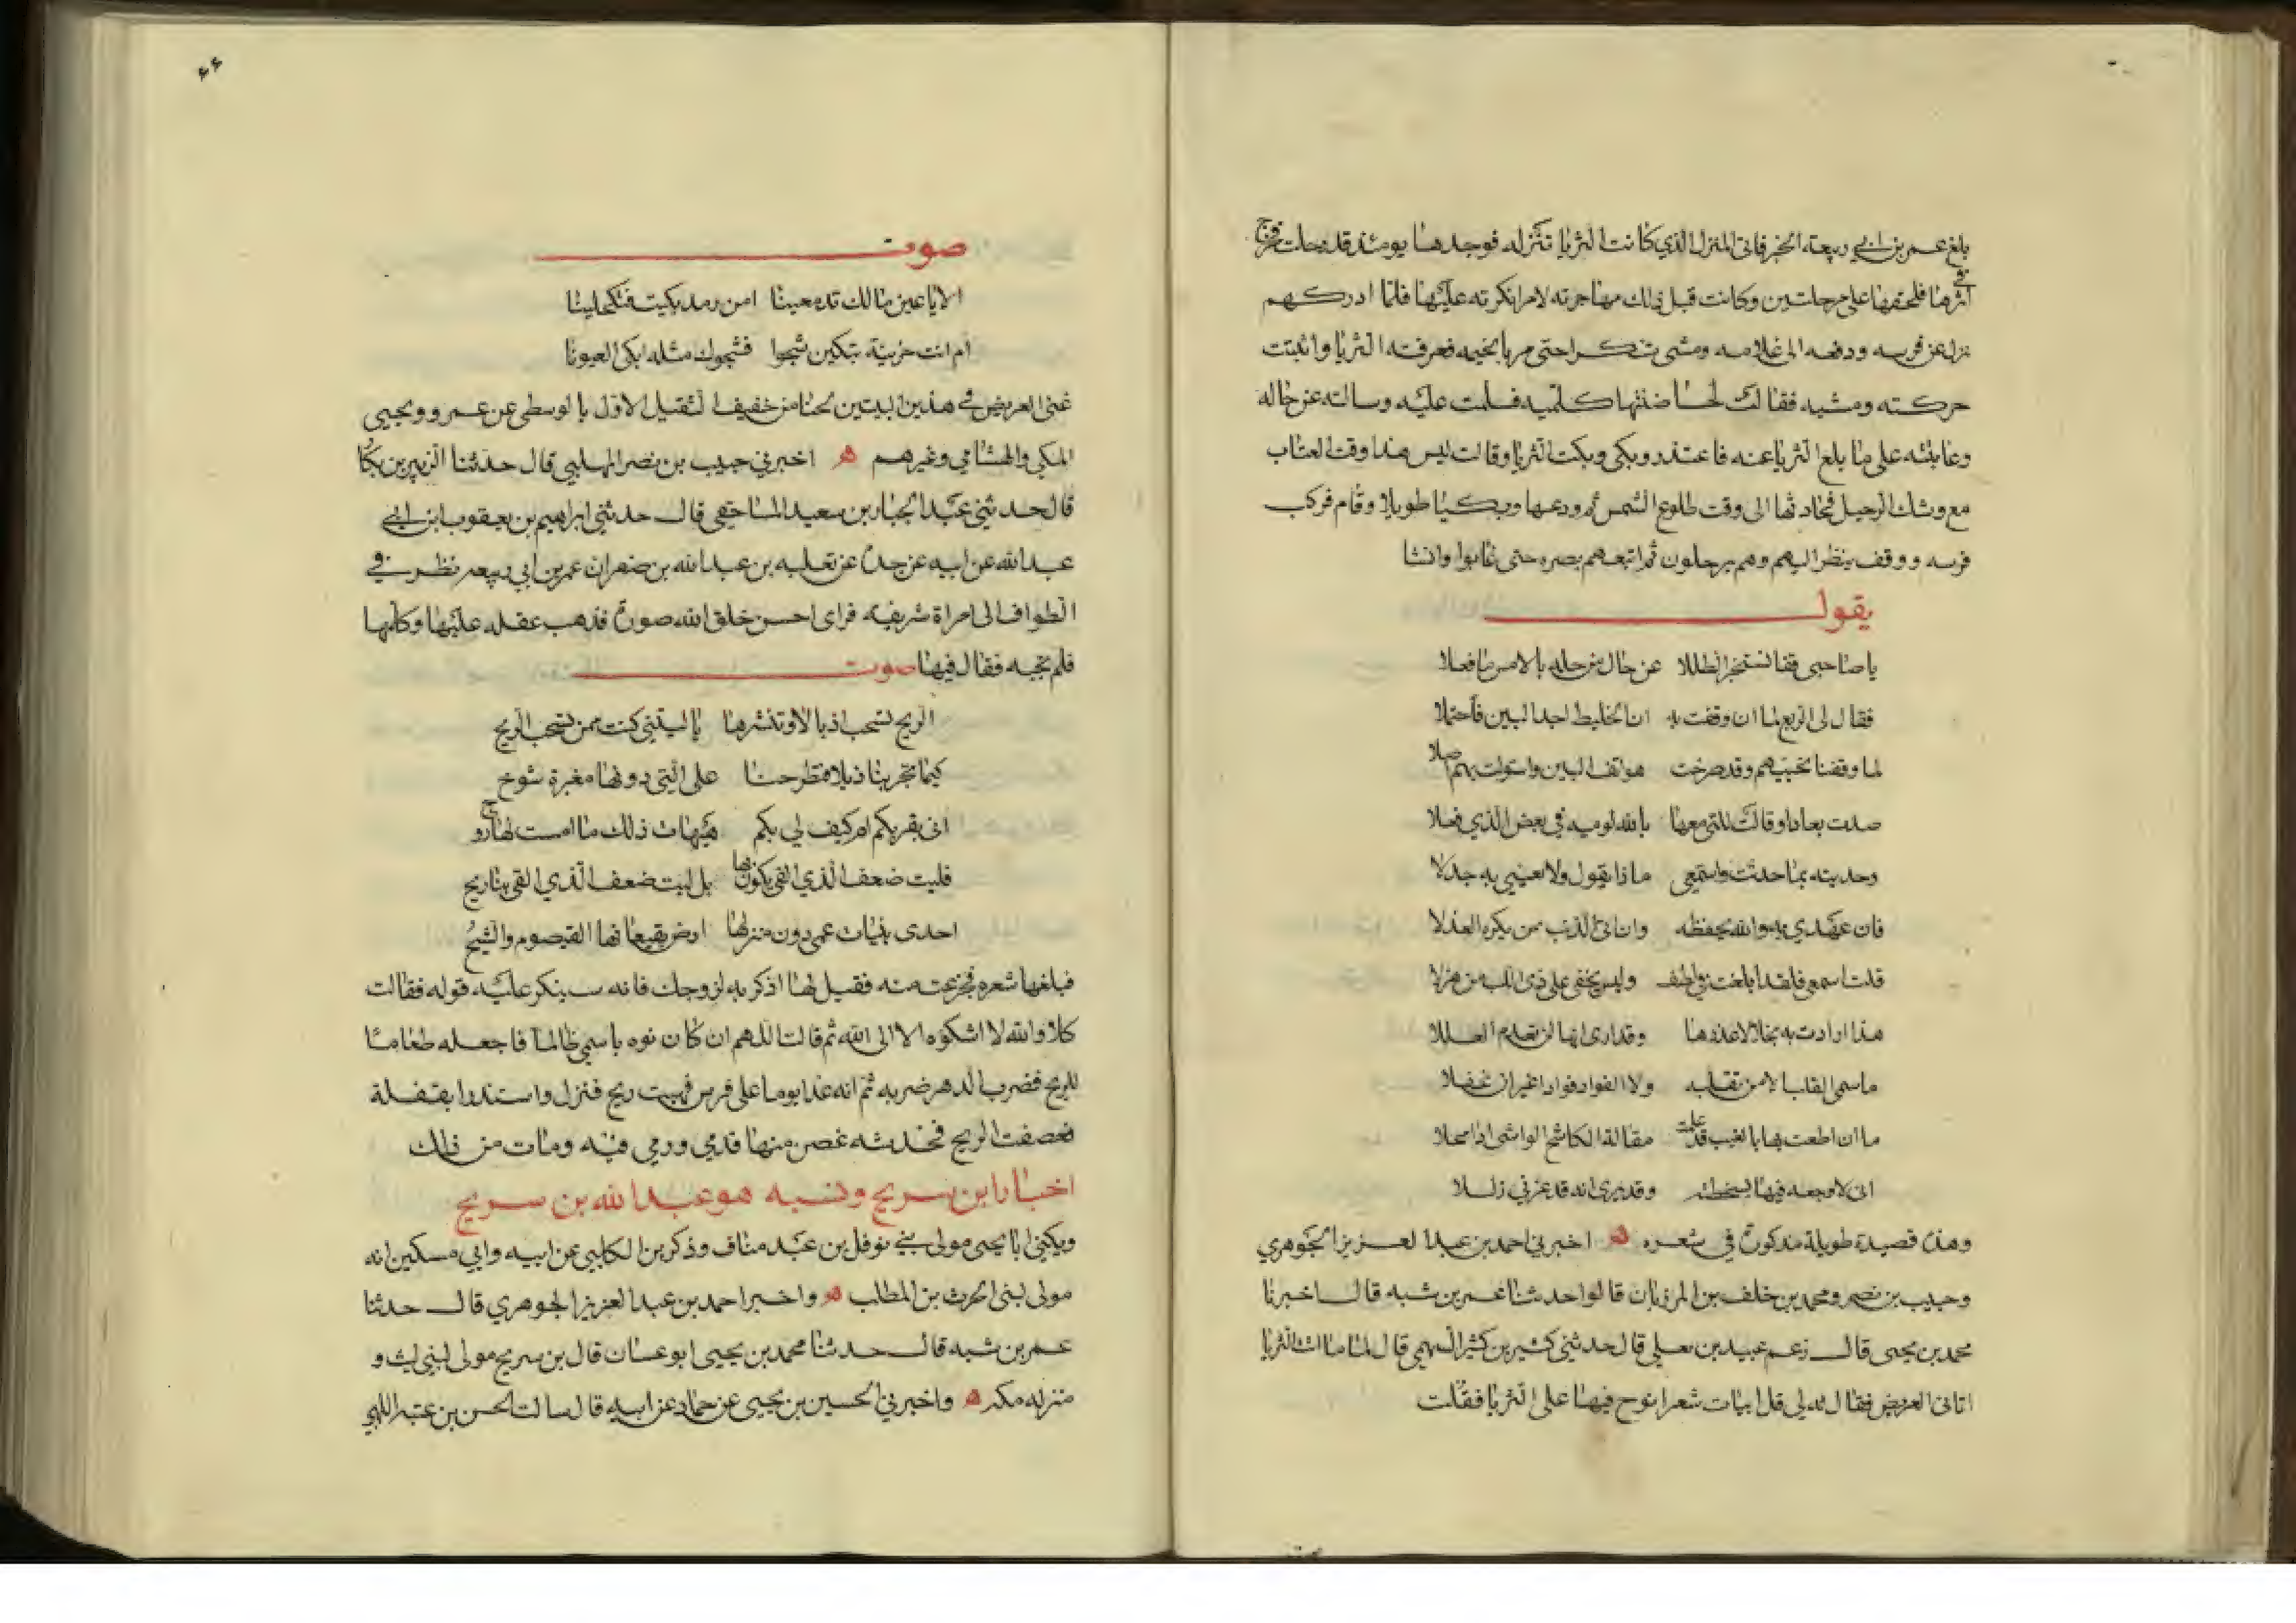 بلغ عمر بن ابي ربيعة الخبر فاتى المنزل الذي كانت الثريا تنزله فوجدها يومئذ قد رحلت فخرج
في اثرها فلحقها على مرحلتين وكانت قبل ذلك مهاجرته لامر انكرته عليها فلما ادركهم
نزل عن فرسه ودفعه الى غلامه ومشى متنكرا حتى مر بالخيمه فعرفته الثريا واثبتت
حركته ومشيه فقالت لحاضنتها كلميه فسلمت عليه وسالته عن حاله
وعاتبته على ما بلغ الثريا عنه فاعتذر وبكى وبكت الثريا وقالت ليس هذا وقت العتاب
مع وشك الرحيل فحادثها الى وقت طلوع الشمس ثم ودعها وبكيا طويلا وقام فركب
فرسه ووقف ينظر اليهم وهم يرحلون ثم اتبعهم بصره حتى غابوا وانشا
يقول
يا صاحبي قفا نستخبر الطللا عن حال من حله بالامس ما فعلا
فقال لي الربع لما ان وقفت به ان الخليط اجد البين فاحتملا
لما وقفنا نحييهم وقد صرخت هواتف البين واستولت بهم اصلا
صدت بعادا وقالت للتي معها بالله لوميه في بعض الذي فعلا
وحدثيه بما حدثت واستمعي ماذا يقول ولا تعيي به جدلا
فان عهدي به والله يحفظه وان اتى الذنب ممن يكره العذلا
قلت اسمعي فلقد ابلغت في لطف وليس يخفى على ذي اللب من هزلا
هذا ارادت به بخلا لاعذرها وقد ارى انها لن تعدم العللا
ما سمي القلب الا من تقلبه ولا الفواد فوادا غير ان عقلا
ما ان اطعت بها بالغيب قد علمت مقالة الكاشح الواشي اذا محلا
اني لارجعه فيها بسخطته وقد يرى انه قد غرني زللا
وهذه قصيدة طويلة مذكورة في شعره ه اخبرني احمد بن عبد العزيز الجوهري
وحبيب بن نصر ومحمد بن خلف بن المرزبان قالوا حدثنا عمر بن شبه قال اخبرنا
محمد بن يحيى قال زعم عبيد بن يعلى قال حدثني كثير بن كثير السهمي قال لما ماتت الثريا
اتاني الغريض فقال لي قل ابيات شعر انوح فيها على الثريا فقلت
٤٤
صوت
الا يا عين مالك تدمعينا امن رمد بكيت فتكحلينا
ام انت حزينة تبكين شجوا فشجوك مثله ابكى العيونا
غنى الغريض في هذين البيتين لحنا من خفيف الثقيل الاول بالوسطى عن عمرو ويحيى
المكي والهشامي وغيرهم ه اخبرني حبيب بن نصر المهلبي قال حدثنا الزبير بن بكار
قال حدثني عبد الجبار بن سعيد المساحقي قال حدثني ابراهيم بن يعقوب ابن ابي
عبد الله عن ابيه عن جده عن ثعلبه بن عبد الله بن صعر ان عمر بن ابي ربيعه نظر في
الطواف الى امراة شريفه فراى احسن خلق الله صورة فذهب عقله عليها وكلمها
فلم تجبه فقال فيها صوت
الريح تسحب اذيالا وتنشرها يا ليتني كنت ممن تسحب الريح
كيما تجر بنا ذيلا فتطرحنا على التي دونها مغبرة سوح
انى بقربكم ام كيف لي بكم هيهات ذلك ما امست لنا روح
فليت ضعف الذي القى يكون بها بل ليت ضعف الذي القى تباريح
احدى بنيات عمي دون منزلها ارض بقيعانها القيصوم والشيح
فبلغها شعره فجزعت منه فقيل لها اذكريه لزوجك فانه سينكر عليه قوله فقالت
كلا والله لا اشكوه الا الى الله ثم قالت اللهم ان كان نوه باسمي ظالما فاجعله طعاما
للريح فضرب الدهر ضربه ثم انه غدا يوما على فرس فهبت ريح فنزل واستذرا بقفلة
فعصفت الريح فخدشه غصن منها فدمي وورمي فيه ومات من ذلك
اخبار ابن سريج ونسبه هو عبد الله بن سريج
ويكنى ابا يحيى مولى بني نوفل بن عبد مناف وذكر بن الكلبي عن ابيه وابي مسكين انه
مولى لبني الحرث بن المطلب ه واخبرا احمد بن عبد العزيز الجوهري قال حدثنا
عمر بن شبه قال حدثنا محمد بن يحيى ابو غسان قال بن سريج مولى لبني ليث و
منزله مكه ه واخبرني الحسين بن يحيى عن حماد عن ابيه قال سالت الحسن بن عتبه اللهبي